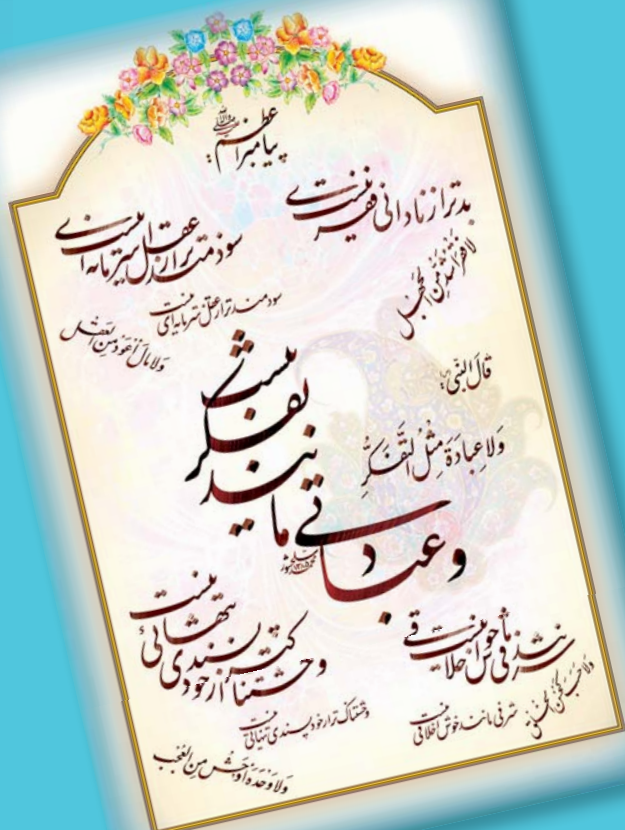 پیامبر اعظم
بدتر از نادانی فقری نیست
لا فقر اشد من الجهل
سودمندتر از عقل سرمایه‌ای نیست
سودمندتر از عقل سرمایه‌ای نیست
ولا مال اعود من العقل
قال النبی
وَلا عِبادَةَ مِثْلُ التَّفَکُّرِ
و عبادتی مانند تفکر نیست
شرفی مانند خوش اخلاقی نیست
شرفی مانند خوش اخلاقی نیست
وحشتناکتر از خودپسندی تنهائی نیست
وحشتناک تر از خود پسندی تنهایی نیست
ولا وحدة اوحش من العجب